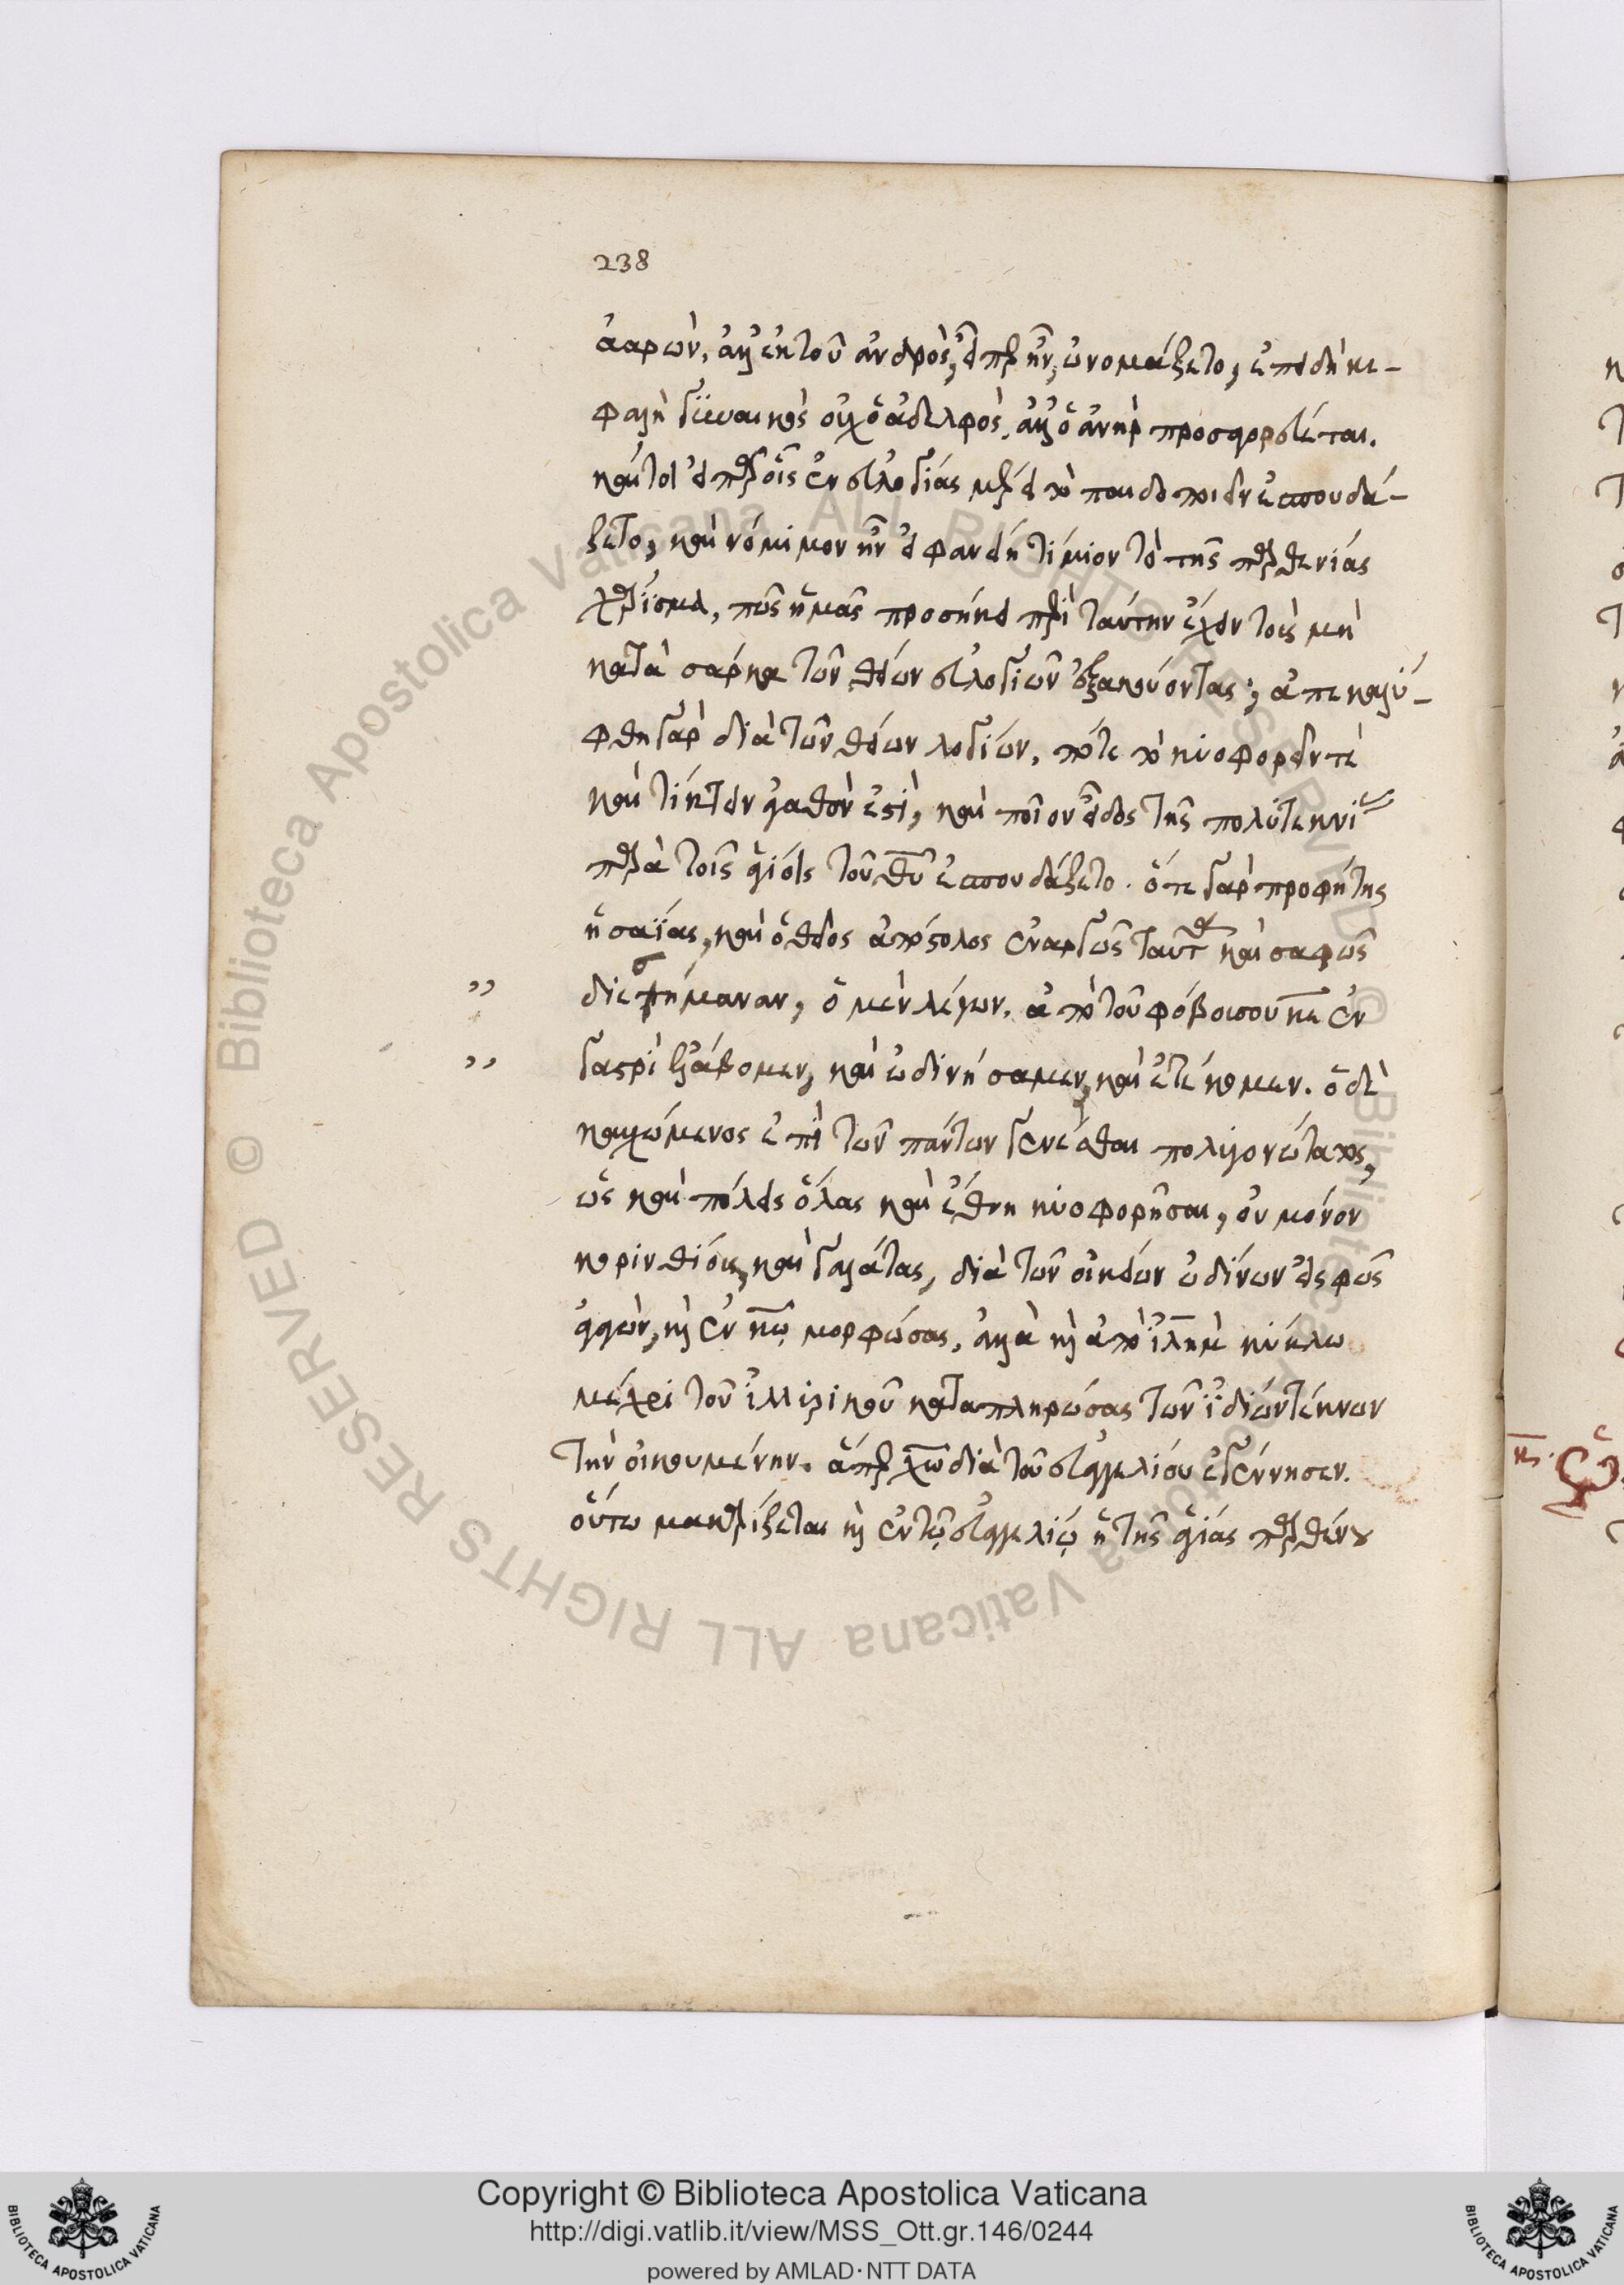 238
ἀαρών. ἀλλ' ἐκ τοῦ ἀνδρὸς, εἴπερ ἦν, ὠνομάζετο, ἐπειδὴ κε-
φαλὴ γυναικὸς οὐχ ὁ ἀδελφὸς, ἀλλ' ὁ ἀνὴρ προσηγόρευται.
καίτοι εἰ παρ' οἷς ἐν εὐλογίας μέρει τὸ παιδοποιεῖν ἐσπουδά-
ζετο, καὶ νόμιμον ἦν εἰ φανείη τίμιον τὸ τῆς παρθενίας
χάρισμα, πῶς ἡμᾶς προσήκει περὶ ταύτην ἔχειν τοὺς μὴ
κατὰ σάρκα τῶν θείων εὐλογιῶν ἐξακούοντας; ἀπεκαλύ-
φθη γὰρ διὰ τῶν θείων λογίων, πότε τὸ κυοφορεῖν τε
καὶ τίκτειν ἀγαθὸν ἐστὶ, καὶ ποῖον εἶδος τῆς πολυτεκνίας
παρὰ τοῖς ἁγίοις τοῦ θυ ἐσπουδάζετο. ὅ τε γὰρ προφήτης
ἡσαΐας, καὶ ὁ θεῖος ἀπόστολος ἐναργῶς ταῦτα καὶ σαφῶς
διεσήμαναν, ὁ μὲν λέγων. ἀπὸ τοῦ φόβου σου κε ἐν
γαστρὶ ἐλάβομεν, καὶ ὠδινήσαμεν, καὶ ἐτέκομεν. ὁ δὲ
καυχώμενος ἐπὶ τῶν πάντων γενέσθαι πολυγονώτατος,
ὡς καὶ πόλεις ὅλας καὶ ἔθνη κυοφορῆσαι, οὐ μόνον
κορινθίους, καὶ γαλάτας, διὰ τῶν οἰκείων ὠδίνων εἰς φῶς
ἀγαγὼν, καὶ ἐν κω μορφώσας. ἀλλὰ καὶ ἀπὸ ἱλημ κύκλω
μέχρι τοῦ ἰλλιρικοῦ καταπληρώσας τῶν ἰδίων τέκνων
τὴν οἰκουμένην. ἅπερ χω διὰ τοῦ εὐαγγελίου ἐγέννησεν.
οὕτω μακαρίζεται καὶ ἐν τῷ εὐαγγελίῳ ἡ τῆς ἁγίας παρθένου
Copyright © Biblioteca Apostolica Vaticana
http://digi.vatlib.it/view/MSS_Ott.gr.146/0244
powered by AMLAD·NTT DATA